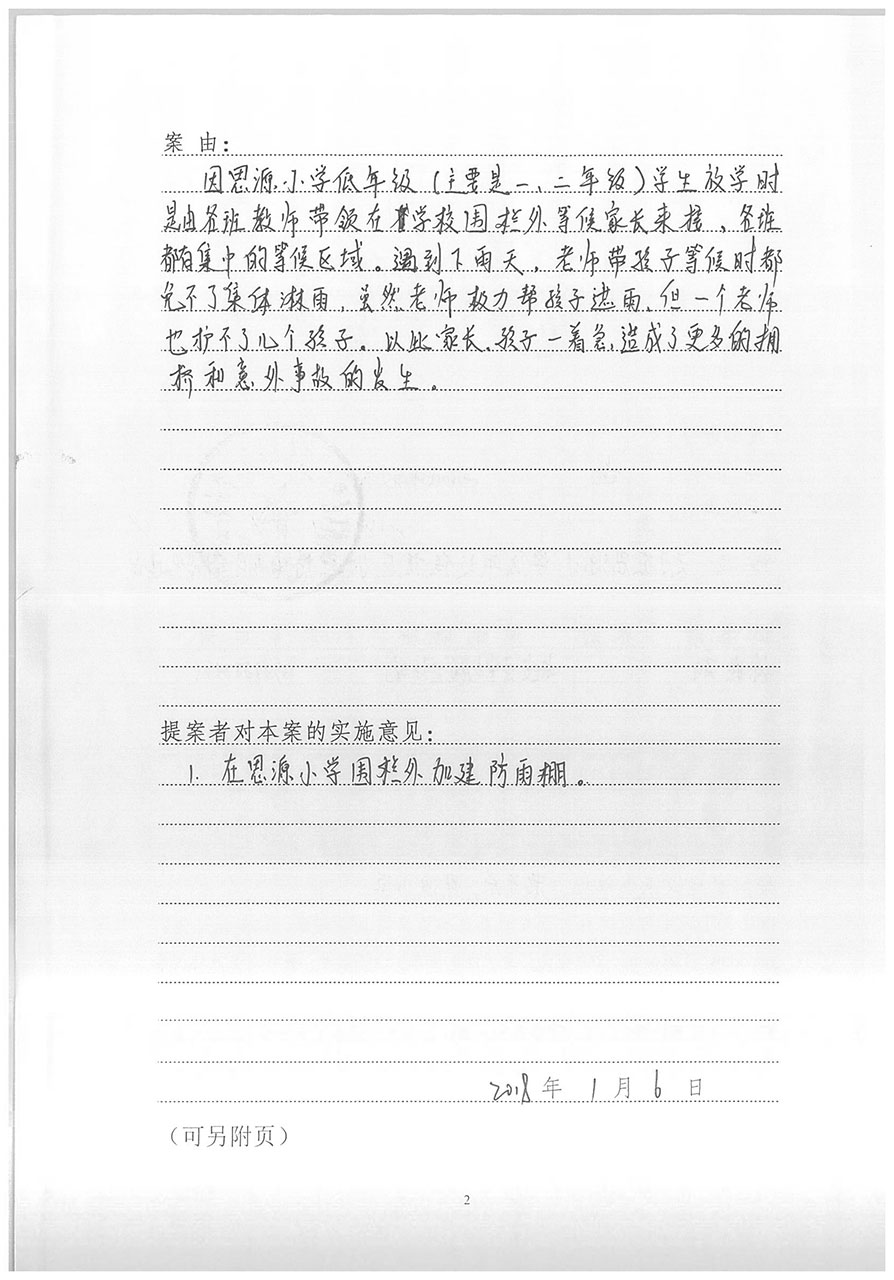 案 由：
因思源小学低年级（主要是一、二年级）学生放学时
是由各班教师带领在学校围栏外等候家长来接，各班
都有集中的等候区域。遇到下雨天，老师带孩子等候时都
免不了集体淋雨，虽然老师极力帮孩子遮雨，但一个老师
也护不了几个孩子。以此家长、孩子一着急，造成了更多的拥
挤和意外事故的发生。
提案者对本案的实施意见：
1. 在思源小学围栏外加建防雨棚。
2018年 1月 6日
（可另附页）
2